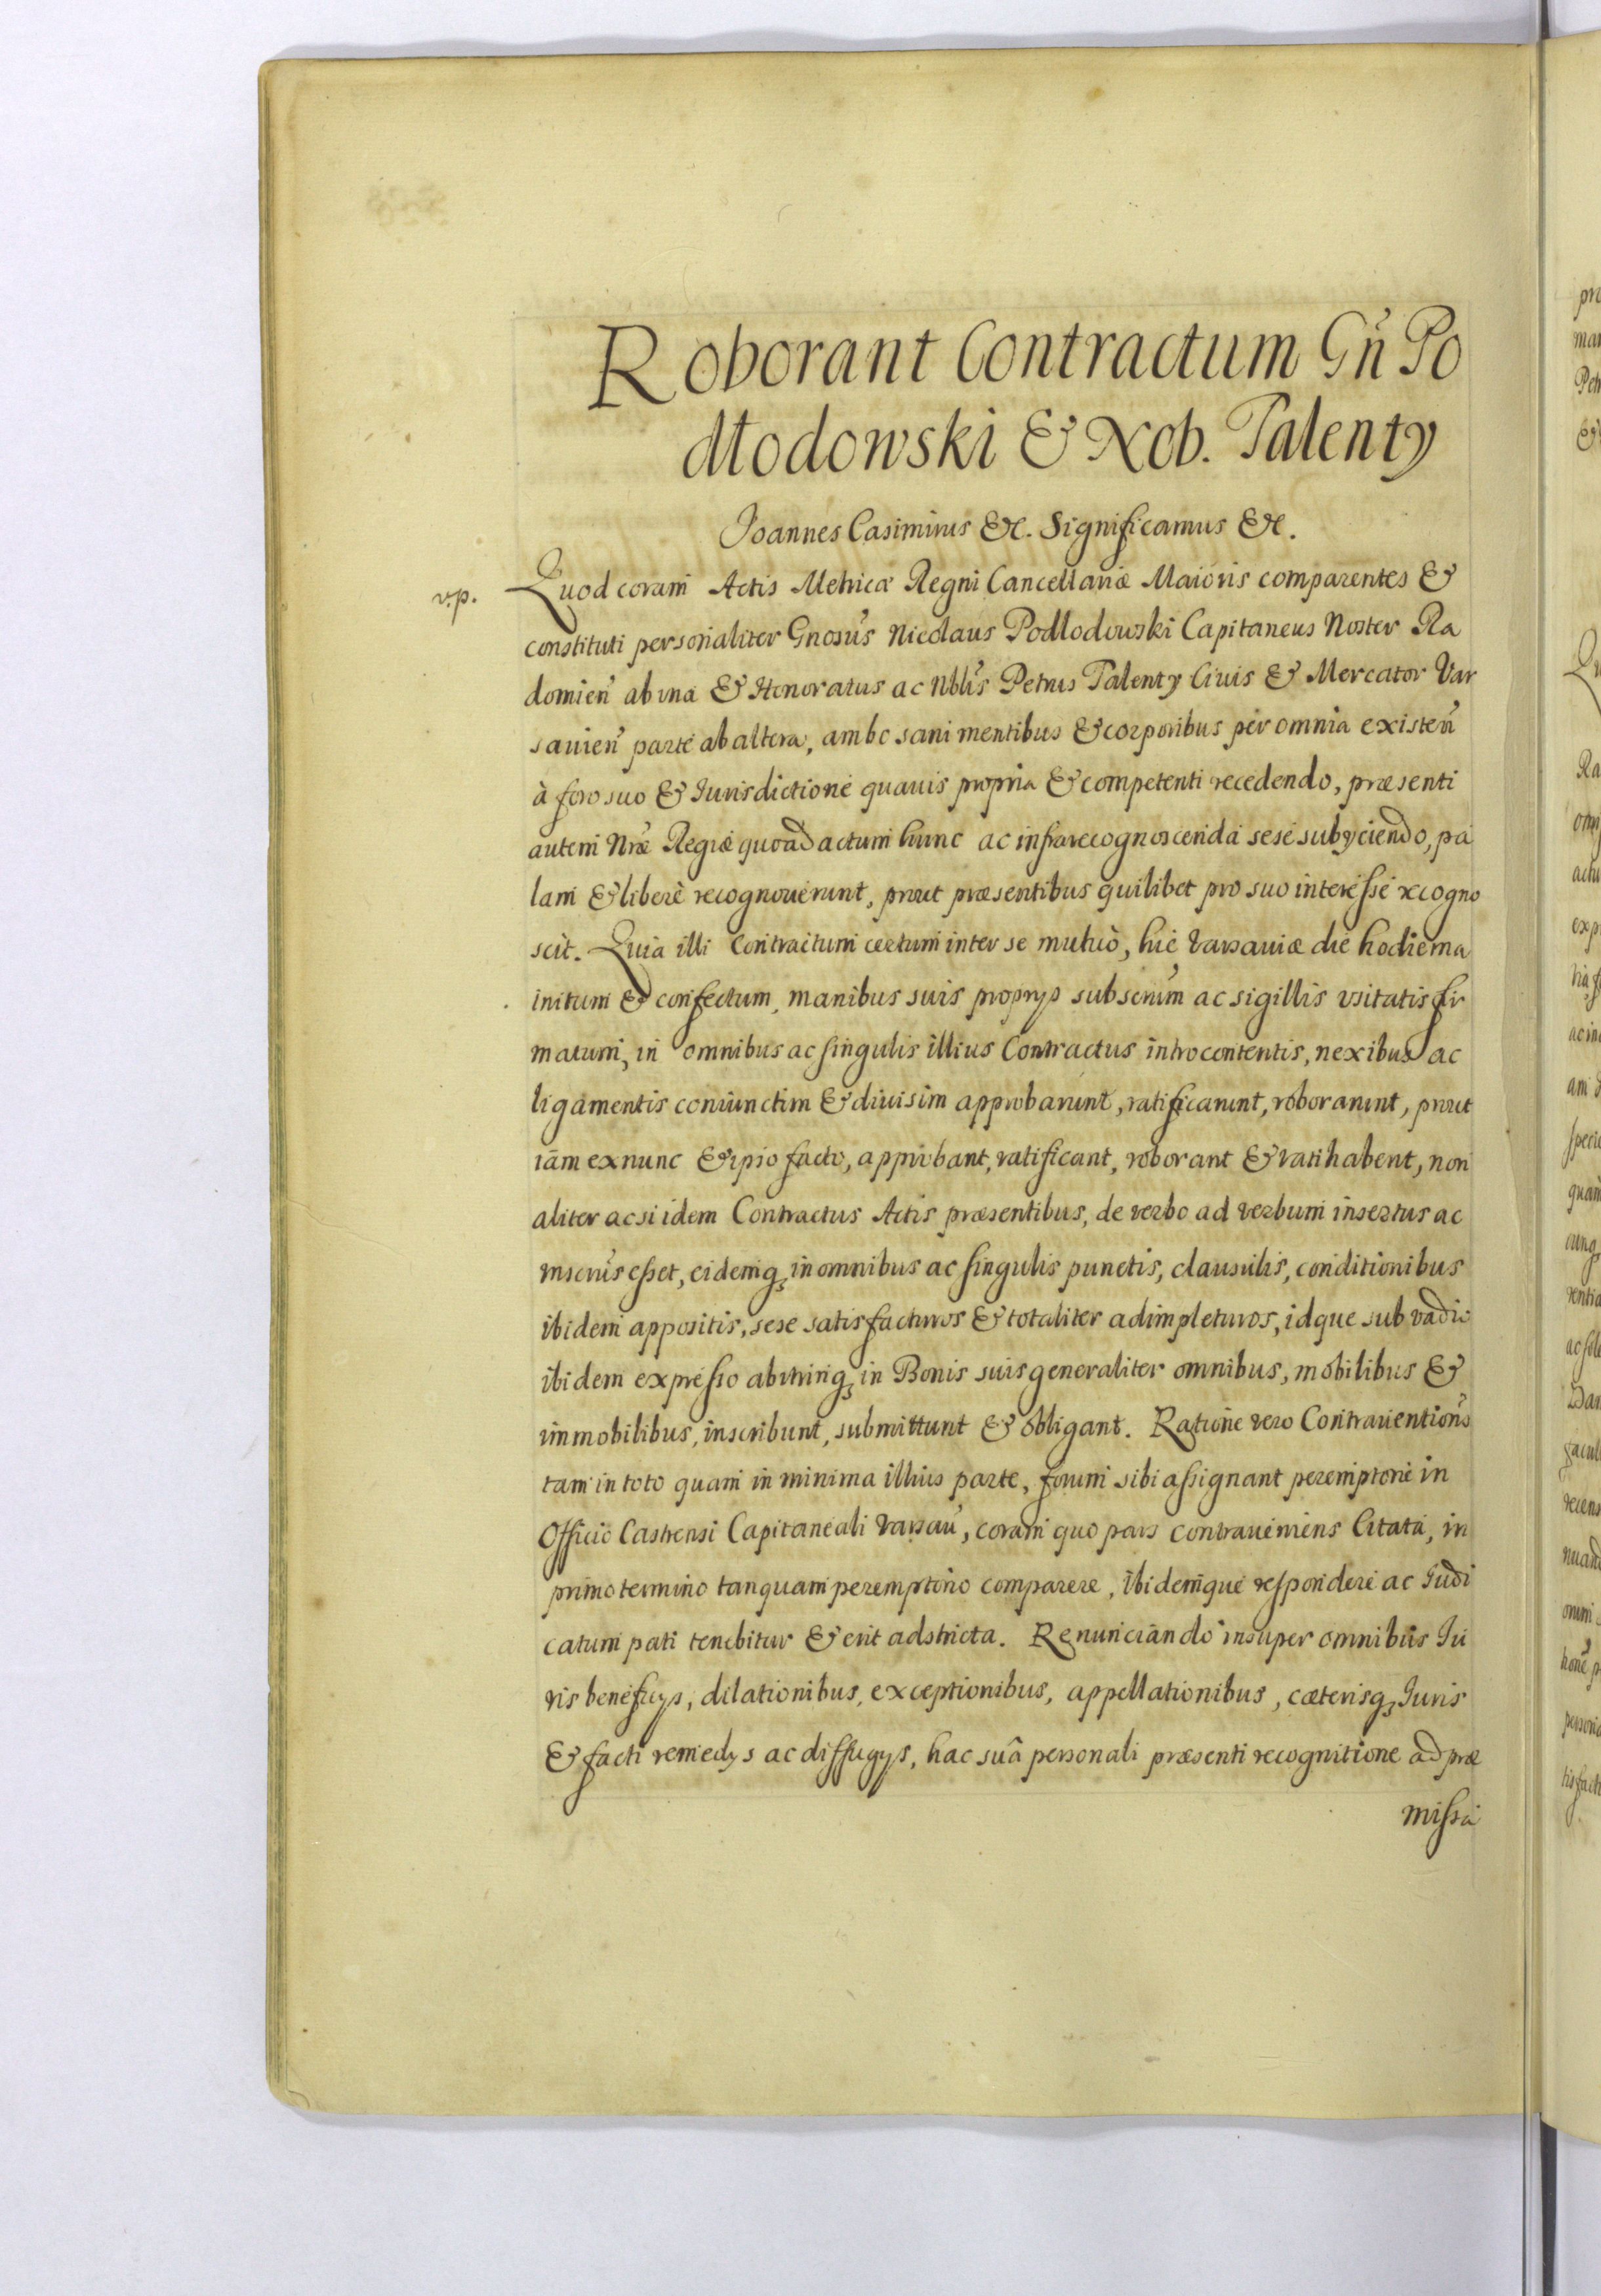 Roborant Contractum Gn̄ Po
dłodowski & Nob. Talenty
Joannes Casimirus &c. Significamus &c.
v.p.
Quod coram Actis Metricæ Regni Cancellariæ Maioris comparentes &
constituti personaliter Gnosus Nicolaus Podlodowski Capitaneus Noster Ra
domien̄ ab una & Honoratus ac Nblis Petrus Talenty Ciuis & Mercator Var
sauien̄ parte ab altera, ambo sani mentibus & corporibus per omnia existen̄
à foro suo & Iurisdictione quauis propria & competenti recedendo, præsenti
autem Nræ Regiæ quoad actum hunc ac infrarecognoscenda sese subyciendo, pa
lam & liberè recognouerunt, prout præsentibus quilibet pro suo interesse recogno
scit. Quia illi Contractum certum inter se mutuò, hic Varsauiæ die hodierna
initum & confectum, manibus suis proprys subscrium ac sigillis vsitatis fir
matum, in omnibus ac singulis illius Contractus introcontentis, nexibus ac
ligamentis coniunctim & diuisim approbarunt, ratificarunt, roborarunt, prout
iam ex nunc & ipso facto, approbant, ratificant, roborant & ratihabent, non
aliter ac si idem Contractus Actis præsentibus, de verbo ad verbum insertus ac
inscrius esset, eidemq; in omnibus ac singulis punctis, clausulis, conditionibus
ibidem appositis, sese satisfacturos & totaliter adimpleturos, idque sub vadio
ibidem expresso abutrinq; in Bonis suis generaliter omnibus, mobilibus &
immobilibus, inscribunt, submittunt & obligant. Ratione vero Contrauentionis
tam in toto quam in minima illius parte, forum sibi assignant peremptorie in
Officio Castrensi Capitaneali Varsau̅, coram quo pars contraueniens Citata, in
primo termino tanquam peremptorio comparere, ibidemque respondere ac Iudi
catum pati tenebitur & erit adstricta. Renunciando insuper omnibus Iu
ris beneficys, dilationibus, exceptionibus, appellationibus, cæterisq; Iuris
& facti remedys ac diffugys, hac suâ personali præsenti recognitione ad præ
missa